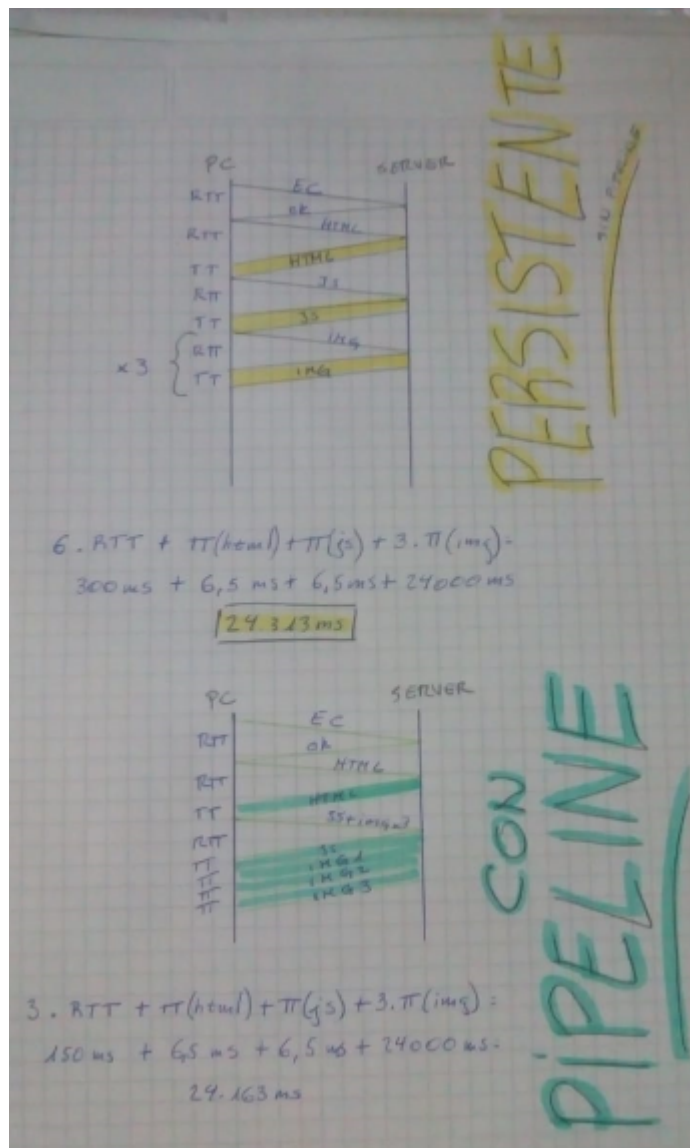 PERSISTENTE
PC SERVER
RTT EC
OK
RTT HTML
TT HTML
RTT JS
TT JS
x 3 RTT IMG
TT IMG
6. RTT + TT(html) + TT(js) + 3. TT(img) =
300 ms + 6,5 ms + 6,5 ms + 24000 ms
24.313 ms
CON
PiPELiNE
PC SERVER
EC
RTT OK
HTML
RTT HTML
TT JS+imgx3
RTT JS
TT iMG1
TT iMG2
TT iMG3
TT
3. RTT + TT(html) + TT(js) + 3. TT(img) =
150 ms + 6,5 ms + 6,5 ms + 24000 ms =
24.163 ms